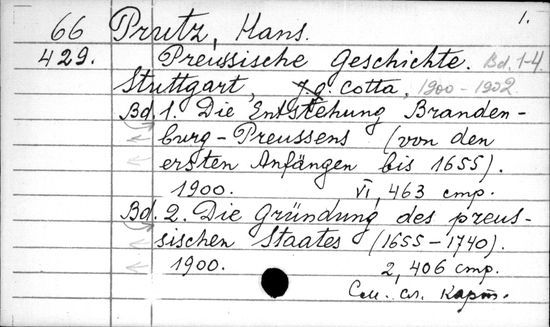 1.
66 Prutz, Hans.
429. Preussische Geschichte. Bd. 1-4
Stuttgart, J. G. Cotta, 1900-1902
Bd. 1. Die Entstehung Branden-
burg-Preussens (von den
ersten Anfängen bis 1655).
1900. VI, 463 стр.
Bd. 2. Die Gründung des preus-
sischen Staates (1655-1740).
1900. 2, 406 стр.
См. сл. карт.